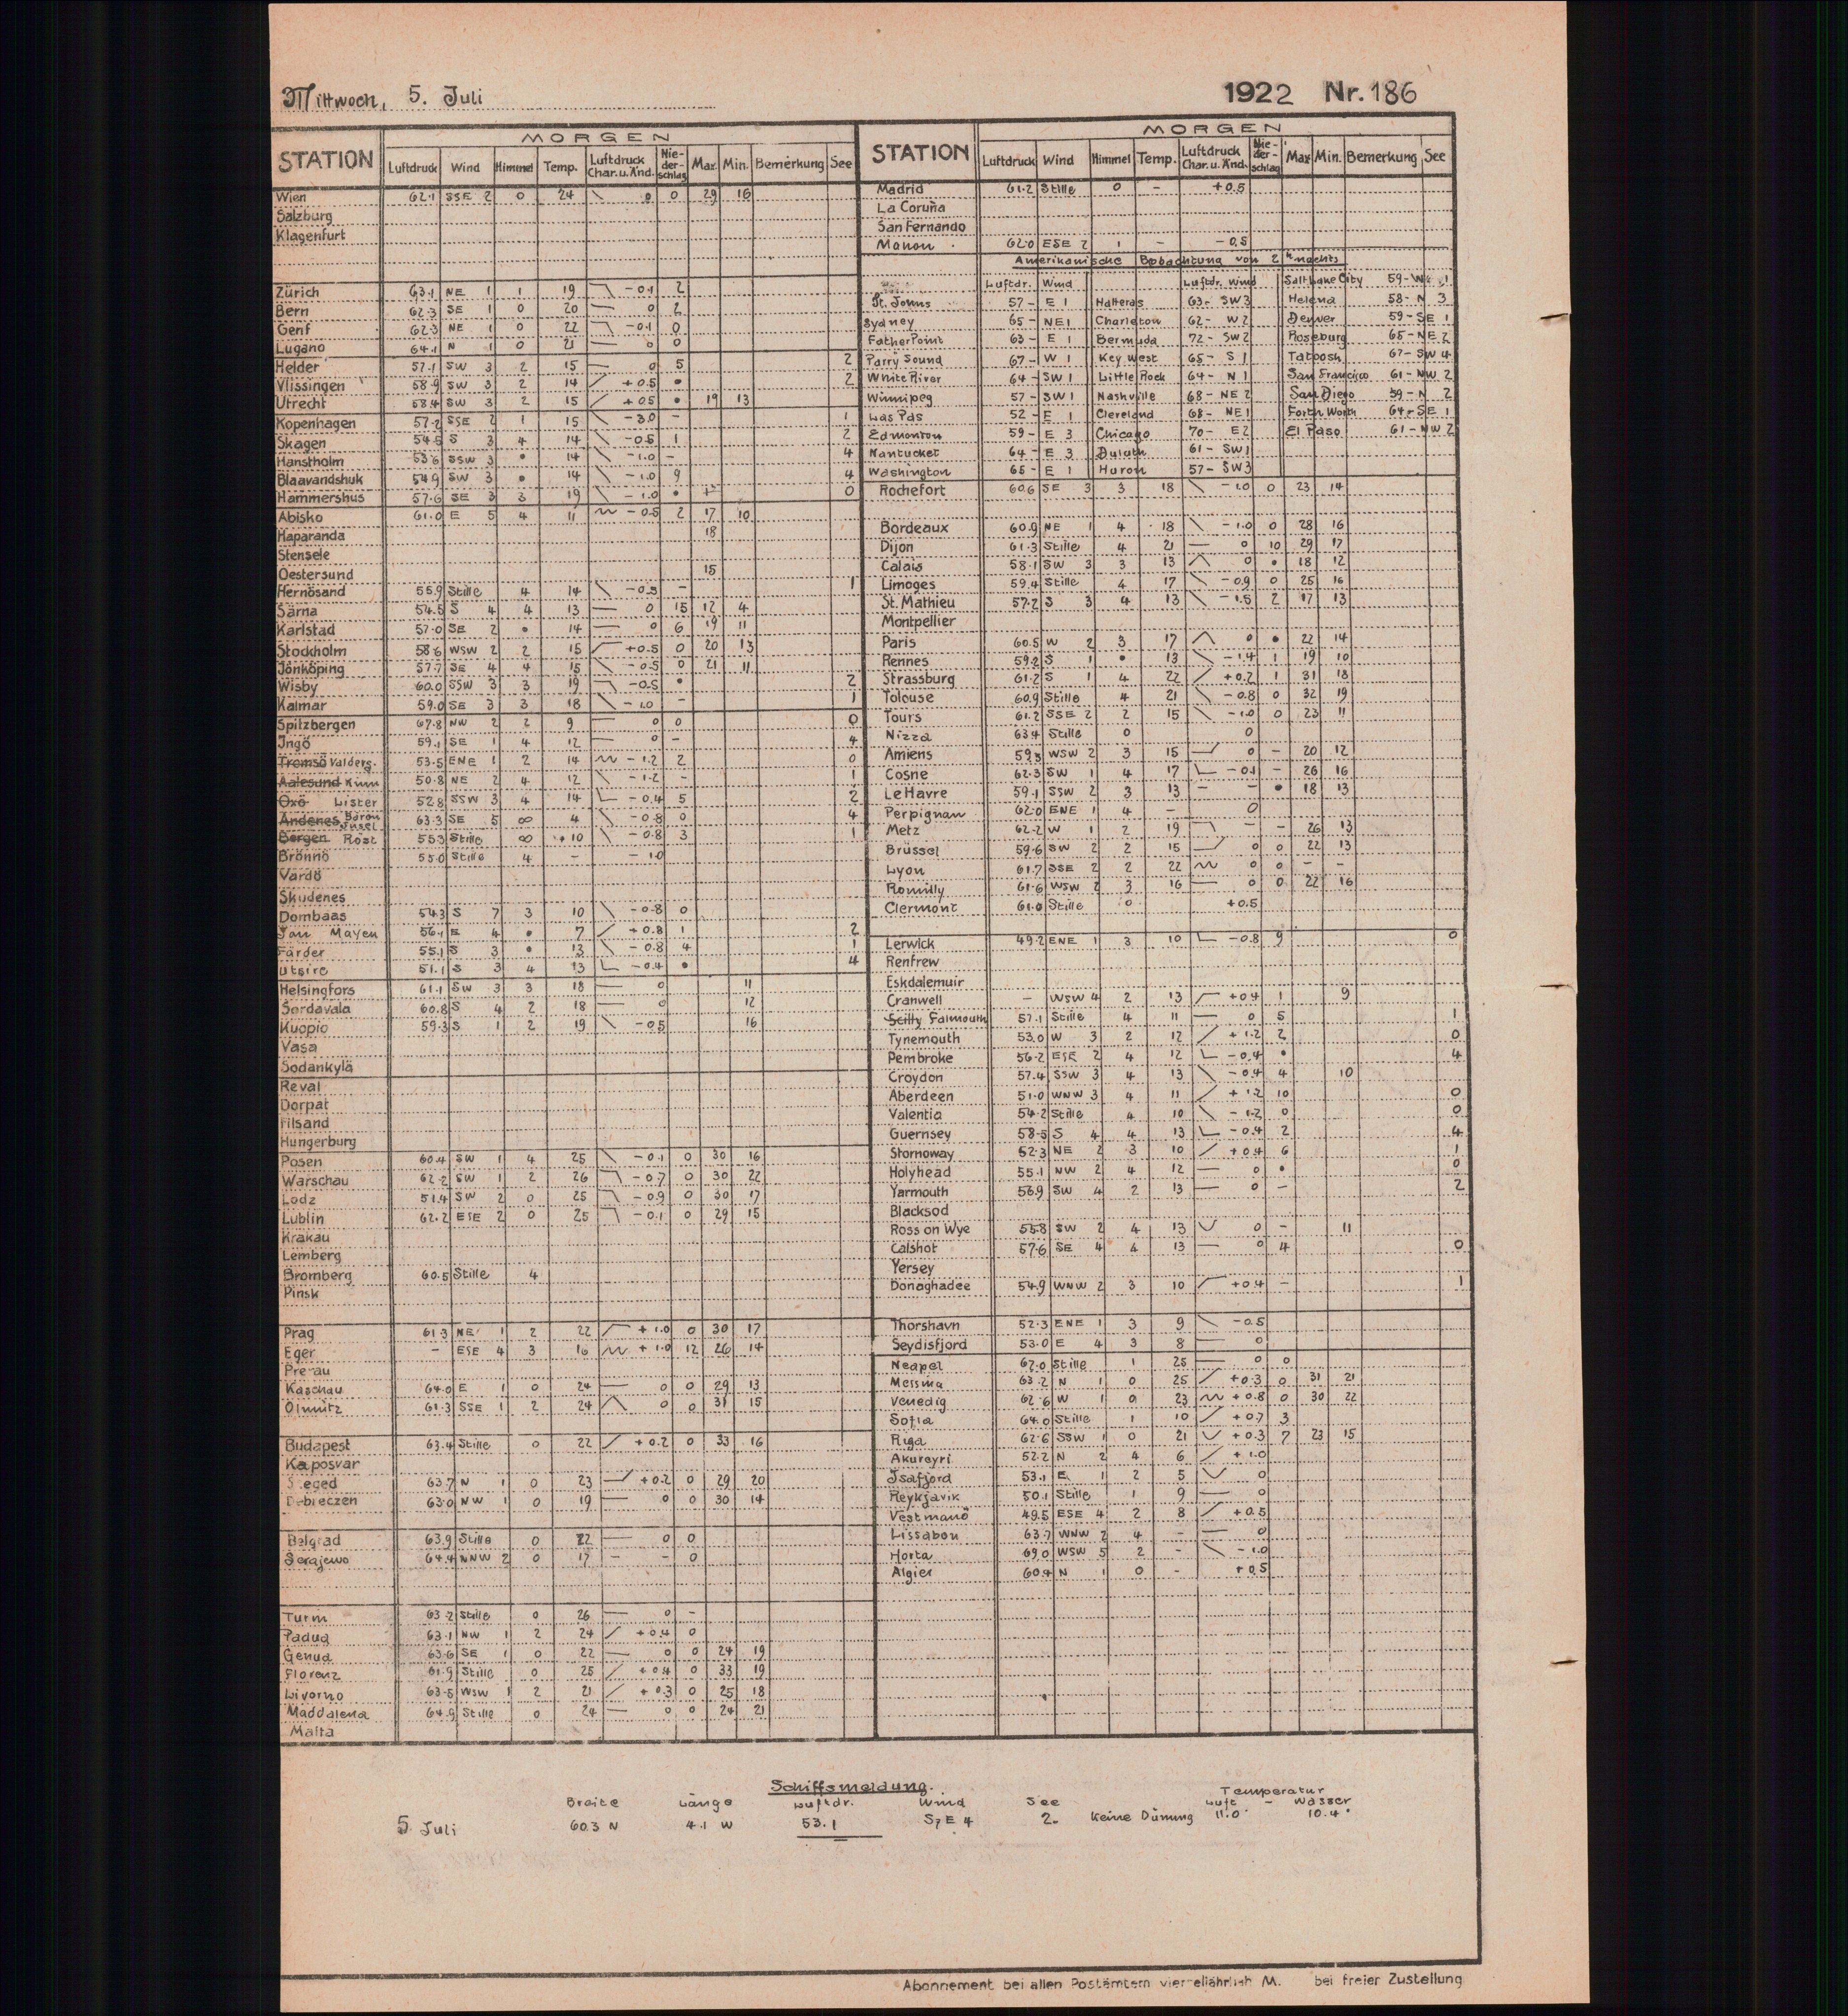 Mittwoch, 5. Juli 1922 Nr. 186
MORGEN
STATION Luftdruck Wind Himmel Temp. Luftdruck Char. u. Änd. Nie-der-schlag Max. Min. Bemerkung See
Wien 62.1 SSE 2 0 24 0 0 29 16
Salzburg
Klagenfurt
Zürich 63.1 NE 1 1 19 -0.1 2
Bern 62.3 SE 1 0 20 0 2
Genf 62.3 NE 1 0 22 -0.1 0
Lugano 64.1 N 1 0 21 0 0
Helder 57.1 SW 3 2 15 0 5 2
Vlissingen 58.9 SW 3 2 14 +0.5 • 2
Utrecht 58.4 SW 3 2 15 +0.5 • 19 13
Kopenhagen 57.2 SSE 2 1 15 -3.0 - 1
Skagen 54.5 S 3 4 14 -0.5 1 2
Hanstholm 53.6 SSW 3 • 14 -1.0 - 4
Blaavandshuk 54.9 SW 3 • 14 -1.0 9 4
Hammershus 57.6 SE 3 3 19 -1.0 • 0
Abisko 61.0 E 5 4 11 -0.5 2 17 10
Haparanda 18
Stensele
Oestersund 15
Hernösand 55.9 Stille 4 14 -0.3 - 1
Särna 54.5 S 4 4 13 0 15 12 4
Karlstad 57.0 SE 2 • 14 0 6 19 11
Stockholm 58.6 WSW 2 2 15 +0.5 0 20 13
Jönköping 57.7 SE 4 4 15 -0.5 0 21 11
Wisby 60.0 SSW 3 3 19 -0.5 • 2
Kalmar 59.0 SE 3 3 18 -1.0 - 1
Spitzbergen 67.8 NW 2 2 9 0 0 0
Ingö 59.1 SE 1 4 12 0 - 4
Tromsö Valderg. 53.5 ENE 1 2 14 -1.2 2 0
Aalesund Kinn 50.8 NE 2 4 12 -1.2 - 1
Oxö Lister 52.8 SSW 3 4 14 -0.4 5 2
Andenes Bären Insel 63.3 SE 5 ∞ 4 -0.8 0 4
Bergen Röst 55.3 Stille ∞ +10 -0.8 3 1
Brönnö 55.0 Stille 4 - -1.0
Vardö
Skudenes
Dombaas 54.3 S 7 3 10 -0.8 0
Jan Mayen 56.1 E 4 • 7 +0.8 1 2
Färder 55.1 S 3 • 13 -0.8 4 1
Utsire 51.1 S 3 4 13 -0.4 • 4
Helsingfors 61.1 SW 3 3 18 0 11
Sordavala 60.8 S 4 2 18 0 12
Kuopio 59.3 S 1 2 19 -0.5 16
Vasa
Sodankylä
Reval
Dorpat
Filsand
Hungerburg
Posen 60.4 SW 1 4 25 -0.1 0 30 16
Warschau 62.2 SW 1 2 26 -0.7 0 30 22
Lodz 51.4 SW 2 0 25 -0.9 0 30 17
Lublin 62.2 ESE 2 0 25 -0.1 0 29 15
Krakau
Lemberg
Bromberg 60.5 Stille 4
Pinsk
Prag 61.3 NE 1 2 22 +1.0 0 30 17
Eger - ESE 4 3 16 +1.0 12 26 14
Prerau
Kaschau 64.0 E 1 0 24 0 0 29 13
Olmütz 61.3 SSE 1 2 24 0 0 31 15
Budapest 63.4 Stille 0 22 +0.2 0 33 16
Kaposvar
Szeged 63.7 N 1 0 23 +0.2 0 29 20
Debreczen 63.0 NW 1 0 19 0 0 30 14
Belgrad 63.9 Stille 0 22 0 0
Serajewo 64.4 NNW 2 0 17 - - 0
Turin 63.2 Stille 0 26 0 -
Padua 63.1 NW 1 2 24 +0.4 0
Genua 63.6 SE 1 0 22 0 0 24 19
Florenz 61.9 Stille 0 25 +0.4 0 33 19
Livorno 63.5 WSW 1 2 21 +0.3 0 25 18
Maddalena 64.9 Stille 0 24 0 0 24 21
Malta
MORGEN
STATION Luftdruck Wind Himmel Temp. Luftdruck Char. u. Änd. Nie-der-schlag Max. Min. Bemerkung See
Madrid 61.2 Stille 0 - +0.5
La Coruña
San Fernando
Mahon 62.0 ESE 2 1 - -0.5
Amerikanische Beobachtung von 2 h nachts
Luftdr. Wind Luftdr. Wind Salt Lake City 59- W 1
St. Johns 57- E 1 Hatteras 63- SW 3 Helena 58- N 3
Sydney 65- NE 1 Charleton 62- W 2 Denver 59- SE 1
Father Point 63- E 1 Bermuda 72- SW 2 Roseburg 65- NE 2
Parry Sound 67- W 1 Key West 65- S 1 Tatoosh 67- SW 4
White River 64- SW 1 Little Rock 64- N 1 San Francisco 61- NW 2
Winnipeg 57- SW 1 Nashville 68- NE 2 San Diego 59- N 2
Las Pas 52- E 1 Cleveland 68- NE 1 Forth Worth 64- SE 1
Edmonton 59- E 3 Chicago 70- E 2 El Paso 61- NW 2
Nantucket 64- E 3 Duluth 61- SW 1
Washington 65- E 1 Huron 57- SW 3
Rochefort 60.6 SE 3 3 18 -1.0 0 23 14
Bordeaux 60.9 NE 1 4 18 -1.0 0 28 16
Dijon 61.3 Stille 4 21 0 10 29 17
Calais 58.1 SW 3 3 13 0 • 18 12
Limoges 59.4 Stille 4 17 -0.9 0 25 16
St. Mathieu 57.2 S 3 4 13 -1.5 2 17 13
Montpellier
Paris 60.5 W 2 3 17 0 • 22 14
Rennes 59.2 S 1 • 13 -1.4 1 19 10
Strassburg 61.2 S 1 4 22 +0.2 1 31 18
Tolouse 60.9 Stille 4 21 -0.8 0 32 19
Tours 61.2 SSE 2 2 15 -1.0 0 23 11
Nizza 63.4 Stille 0 0
Amiens 59.3 WSW 2 3 15 0 - 20 12
Cosne 62.3 SW 1 4 17 -0.1 - 26 16
Le Havre 59.1 SSW 2 3 13 - - • 18 13
Perpignan 62.0 ENE 1 4 - 0
Metz 62.2 W 1 2 19 - - 26 13
Brüssel 59.6 SW 2 2 15 0 0 22 13
Lyon 61.7 SSE 2 2 22 0 0 - -
Romilly 61.6 WSW 2 3 16 0 0 22 16
Clermont 61.0 Stille 0 +0.5
Lerwick 49.2 ENE 1 3 10 -0.8 9 0
Renfrew
Eskdalemuir
Cranwell - WSW 4 2 13 +0.4 1 9
Scilly Falmouth 57.1 Stille 4 11 0 5 1
Tynemouth 53.0 W 3 2 12 +1.2 2 0
Pembroke 56.2 ESE 2 4 12 -0.4 • 4
Croydon 57.4 SSW 3 4 13 -0.4 4 10
Aberdeen 51.0 WNW 3 4 11 +1.2 10 0
Valentia 54.2 Stille 4 10 -1.2 0 0
Guernsey 58.5 S 4 4 13 -0.4 2 4
Stornoway 52.3 NE 2 3 10 +0.4 6 1
Holyhead 55.1 NW 2 4 12 0 • 0
Yarmouth 56.9 SW 4 2 13 0 - 2
Blacksod
Ross on Wye 55.8 SW 2 4 13 0 - 11
Calshot 57.6 SE 4 4 13 0 4 0
Yersey
Donaghadee 54.9 WNW 2 3 10 +0.4 - 1
Thorshavn 52.3 ENE 1 3 9 -0.5
Seydisfjord 53.0 E 4 3 8 0
Neapel 62.0 Stille 1 25 0 0
Messina 63.2 N 1 0 25 +0.3 0 31 21
Venedig 62.6 W 1 0 23 +0.8 0 30 22
Sofia 64.0 Stille 1 10 +0.7 3
Riga 62.6 SSW 1 0 21 +0.3 7 23 15
Akureyri 52.2 N 2 4 6 +1.0
Isafjord 53.1 E 1 2 5 0
Reykjavik 50.1 Stille 1 9 0
Vestmanö 49.5 ESE 4 2 8 +0.5
Lissabon 63.7 WNW 2 4 - 0
Horta 69.0 WSW 5 2 - -1.0
Algier 60.4 N 1 0 - +0.5
Schiffsmeldung.
Breite Länge Luftdr. Wind See Temperatur Luft - Wasser
5. Juli 60.3 N 4.1 W 53.1 SzE 4 2. Keine Dünung 11.0° 10.4°
Abonnement bei allen Postämtern vierteljährlich M. bei freier Zustellung